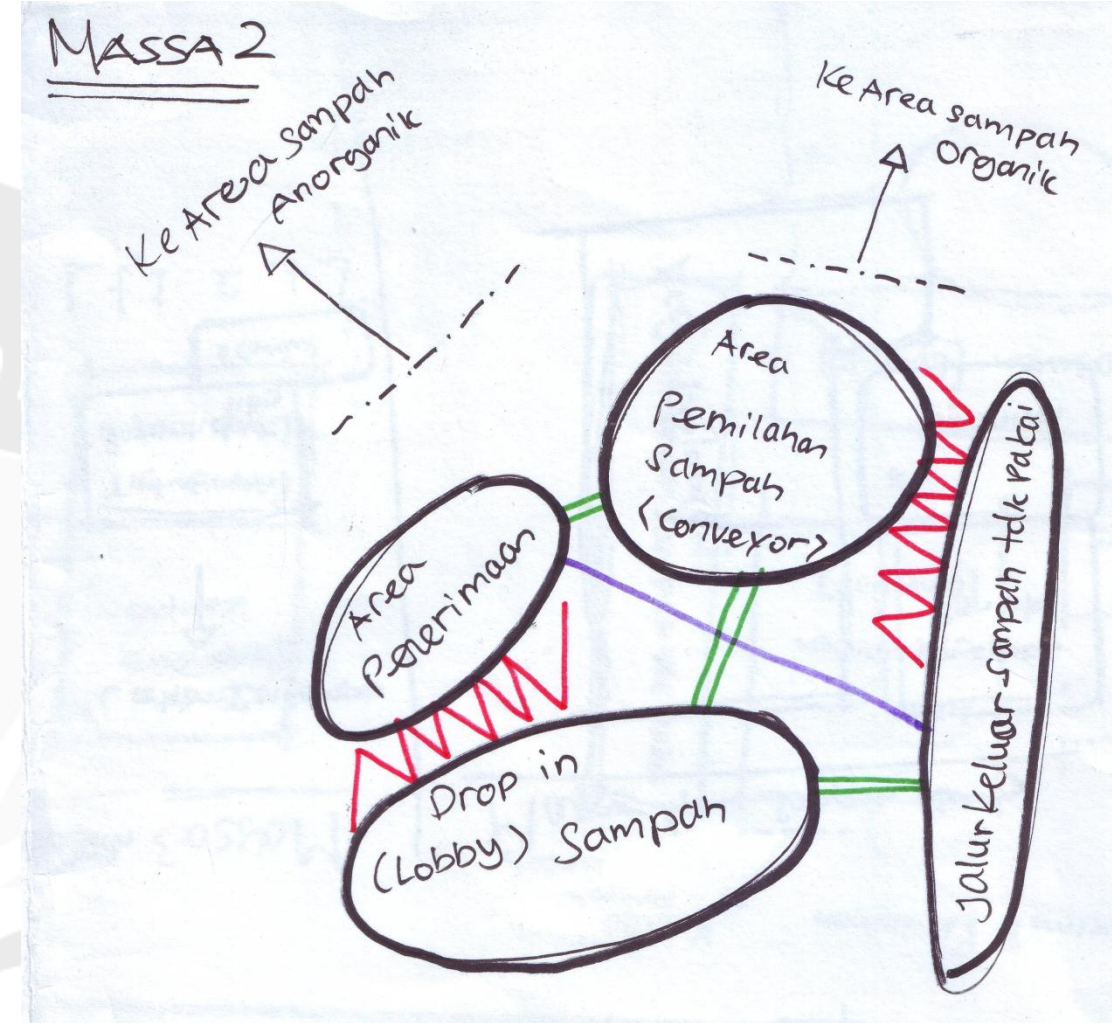 MASSA 2
Ke Area Sampah
Anorganik
Ke Area sampah
Organik
Area
Pemilahan
Sampah
<conveyor>
Area
Penerimaan
Drop in
(Lobby) Sampah
Jalur Keluar sampah tdk pakai